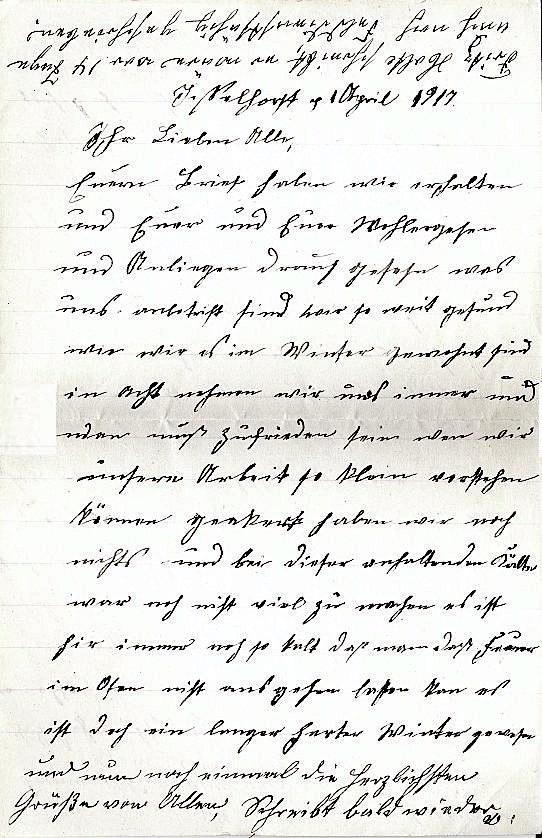 Isselhorst d 1 April 1917.
Ihr Lieben Alle,
Euern Brief haben wir erhalten
und Euer und Eure Wohlergesen
und Anliegen drauf gesehn was
uns anbetrift sind wir so weit gesund
wie wir es im Winter gewohnt sind
in Acht nehmen wir uns immer und
man muß zufrieden sein wen wir
unsere Arbeit so klein vorstehen
können geakert haben wir noch
nichts und bei dieser anhaltenden Kälte
war noch nist viel zu machen es ist
hir immer noch so kalt daß man daß Feuer
im Ofen nist ausgehen lassen kan es
ist doch ein langer harter Winter gewesen
und nun noch einmal die herzlichsten
Grüße von Allen, Schreibt bald wieder.